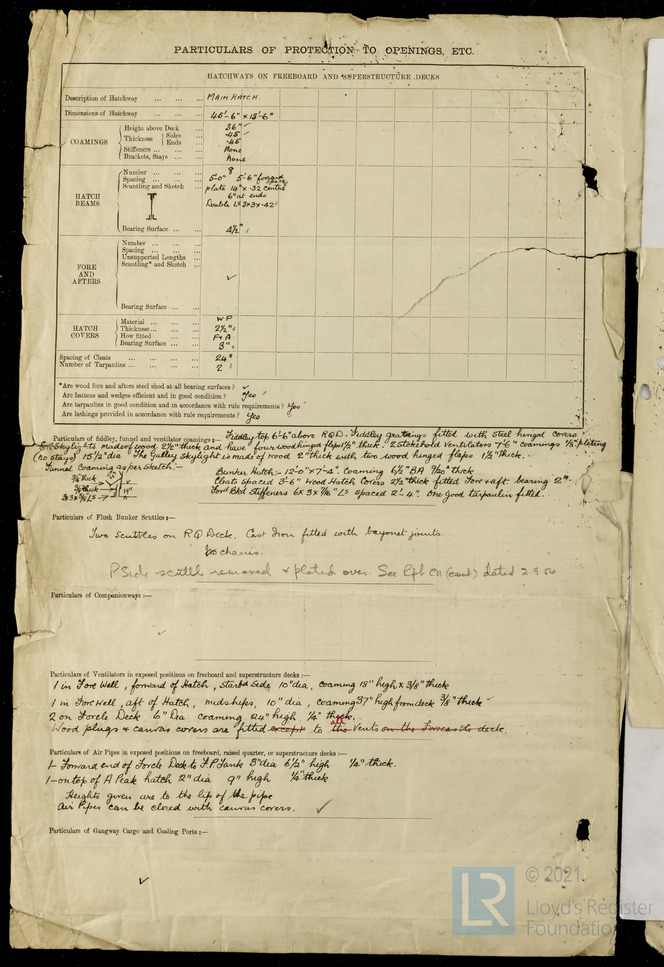 PARTICULARS OF PROTECTION TO OPENINGS, ETC.
HATCHWAYS ON FREEBOARD AND SUPERSTRUCTURE DECKS
Description of Hatchway ... ... ... MAIN HATCH.
Dimensions of Hatchway ... ... ... 45'-6" x 13'-6"
COAMINGS
Height above Deck ... 36"
Thickness { Sides ... .45"
Ends ... .45
Stiffeners ... ... ... None
Brackets, Stays ... ... None
HATCH BEAMS
Number ... ... ... 8
Spacing ... ... ... 5'-0" 5'-6" forward
Scantling and Sketch ... plate 14" x .32 centre
6" at ends
Double Ls 3x3x.42
Bearing Surface ... ... 4½"
FORE AND AFTERS
Number ... ... ...
Spacing ... ... ...
Unsupported Lengths ...
Scantling* and Sketch ...
✓
Bearing Surface ... ...
HATCH COVERS
Material ... ... ... W P
Thickness ... ... ... 2½"
How fitted ... ... F & A
Bearing Surface ... ... 3"
Spacing of Cleats ... ... ... ... 24"
Number of Tarpaulins ... ... ... 2
*Are wood fore and afters steel shod at all bearing surfaces? ✓
Are battens and wedges efficient and in good condition? Yes
Are tarpaulins in good condition and in accordance with rule requirements? Yes
Are lashings provided in accordance with rule requirements? Yes
Particulars of fiddley, funnel and ventilator coamings:— Fiddley top 6'-6" above RQD. Fiddley gratings fitted with steel hinged covers
ER Skylights made of wood 2½" thick and have four wood hinged flaps 1½" thick. 2 Stokehold Ventilators 7'6" coamings ⅛" plating
(no stays) 15½" dia The Galley Skylight is made of wood 2" thick with two wood hinged flaps 1½" thick.
Funnel Coaming as per Sketch:-
Bunker Hatch:- 12'-0" x 7'-4". Coaming 6½" BA 9/20" thick
Cleats spaced 3'-6" Wood Hatch Covers 2½" thick fitted Fore & aft bearing 2"
Ford Bkd Stiffeners 6 x 3 x 7/16" Ls spaced 2'-4". One good tarpaulin fitted.
Particulars of Flush Bunker Scuttles:—
Two Scuttles on RQ Deck. Cast Iron fitted with bayonet joints.
No chains.
P Side scuttle removed & plated over. See Rpt CN (cont) dated 2.9.54
Particulars of Companionways:—
✓
Particulars of Ventilators in exposed positions on freeboard and superstructure decks:—
1 in Fore Well, forward of Hatch, starbd side 10" dia, coaming 18" high x 3/8" thick
1 in Fore Well, aft of Hatch, midships, 10" dia, coaming 37" high from deck 3/8" thick
2 on Forcle Deck 6" Dia coaming 24" high ¼" thick.
Wood plugs & canvas covers are fitted except to the all Vents on the Forecastle deck.
Particulars of Air Pipes in exposed positions on freeboard, raised quarter, or superstructure decks:—
1- Forward end of Forcle Deck to F.P Tank 3" dia 6½" high ¼" thick.
1- on top of A Peak hatch 2" dia 9" high ¼" thick
Heights given are to the lip of the pipe
Air Pipes can be closed with canvas covers. ✓
Particulars of Gangway Cargo and Coaling Ports:—
✓
LR
© 2021
Lloyd's Register
Foundation